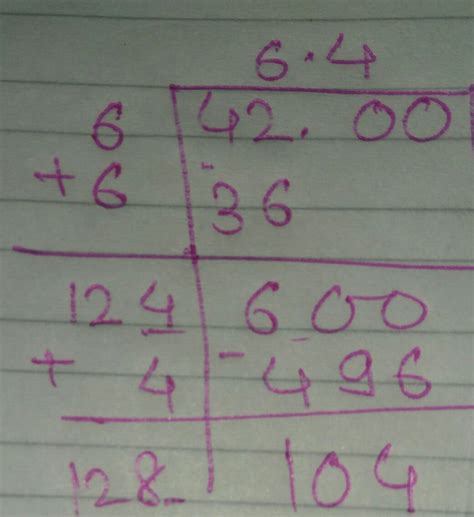 6.4
6 42.00
+6 -36
124 600
+4 -496
128 104